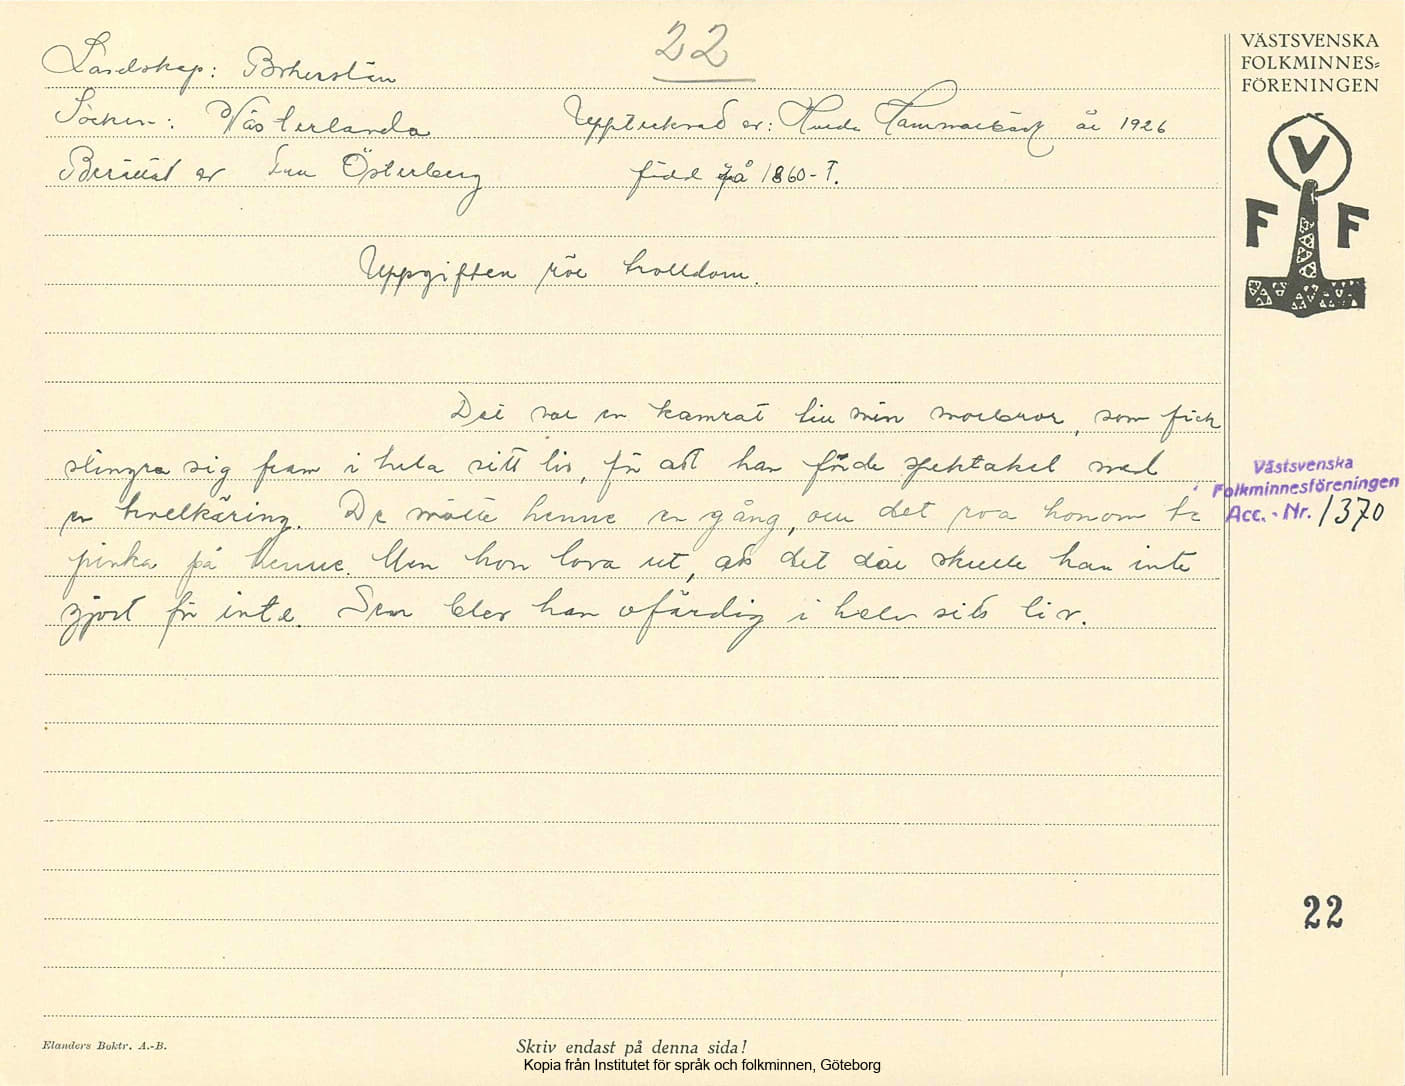 22
VÄSTSVENSKA
FOLKMINNES=
FÖRENINGEN
V
F F
Landskap: Bohuslän
Socken: Västerlanda Upptecknad av: Hulda Hammarbäck år 1926
Berättat av Fru Österberg född på 1860-T.
Uppgiften rör trolldom.
Det var en kamrat till min morbror, som fick
slingra sig fram i hela sitt liv, för att han förde spektakel med
en trollkäring. De mötte henne en gång, och det roa honom te
pinka på henne. Men hon lova ut, att det där skulle han inte
gjort för inte. Sen blev han ofärdig i hela sitt liv.
Västsvenska
Folkminnesföreningen
Acc. - Nr. 1370
22
Elanders Boktr. A.-B.
Skriv endast på denna sida!
Kopia från Institutet för språk och folkminnen, Göteborg